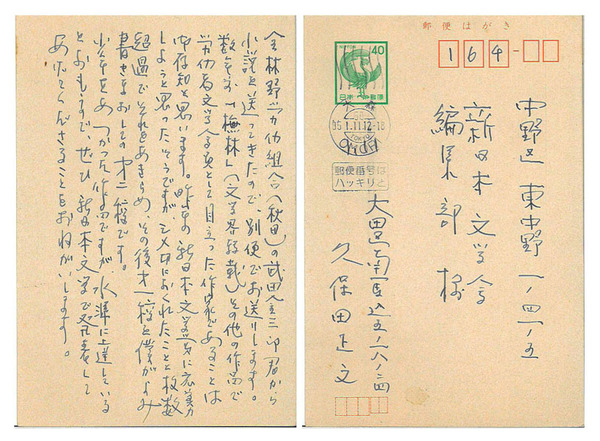 全林野労仂組合（秋田）の武田 三郎君から
小説を送ってきたので、別便でお送りします。
数年前「撫林」（文学界転載）その他の作品で
労仂者文学会員として目立った作家であることは
御存知と思います。昨年の新日本文学賞に応募
しようと思ったそうですが、シメ切におくれたことと枚数
超過でそれをあきらめ、その後才一稿を僕がよみ
書きなおしての才二稿です。
少年をあつかった作品ですが水準に上達している
とおもうので、ぜひ新日本文学で発表して
あげてくださることをおねがいします。
郵便はがき
164-
40
日本郵便
1.11 12-18
NIPPON
郵便番号は
ハッキリと
中野区東中野一ノ四一ノ五
新日本文学会
編集部様
大田区南馬込五ノ一八ノ二四
久保田正文